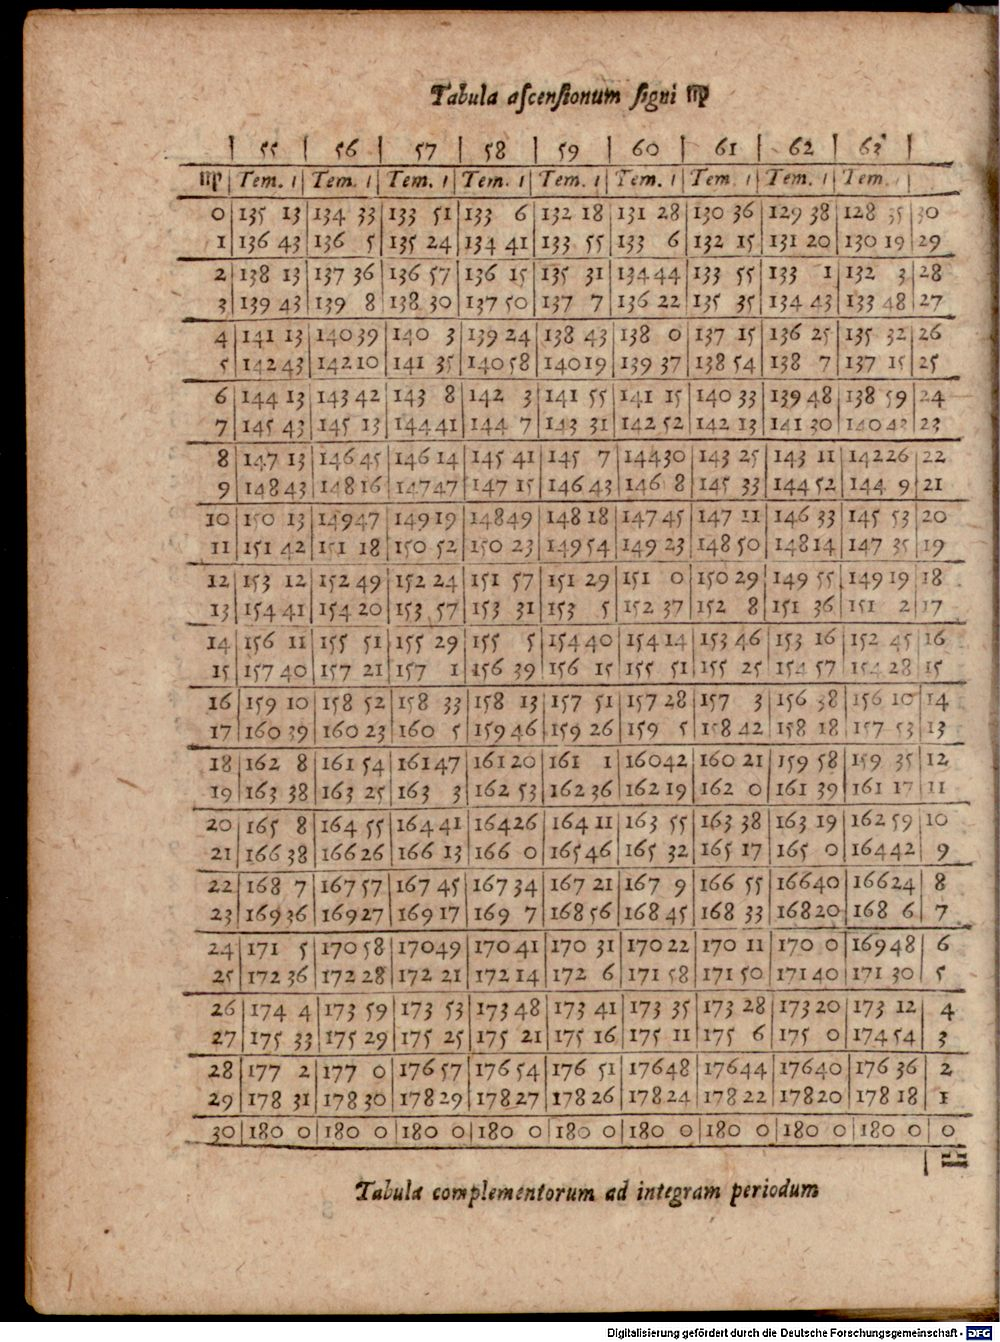 Tabula ascensionum signi ♍
| 55 | 56 | 57 | 58 | 59 | 60 | 61 | 62 | 63 |
♍ | Tem. ı | Tem. ı | Tem. ı | Tem. ı | Tem. ı | Tem. ı | Tem. ı | Tem. ı | Tem. ı |
0 | 135 13 | 134 33 | 133 51 | 133 6 | 132 18 | 131 28 | 130 36 | 129 38 | 128 35 | 30
1 | 136 43 | 136 5 | 135 24 | 134 41 | 133 55 | 133 6 | 132 15 | 131 20 | 130 19 | 29
2 | 138 13 | 137 36 | 136 57 | 136 15 | 135 31 | 134 44 | 133 55 | 133 1 | 132 3 | 28
3 | 139 43 | 139 8 | 138 30 | 137 50 | 137 7 | 136 22 | 135 35 | 134 43 | 133 48 | 27
4 | 141 13 | 140 39 | 140 3 | 139 24 | 138 43 | 138 0 | 137 15 | 136 25 | 135 32 | 26
5 | 142 43 | 142 10 | 141 35 | 140 58 | 140 19 | 139 37 | 138 54 | 138 7 | 137 15 | 25
6 | 144 13 | 143 42 | 143 8 | 142 3 | 141 55 | 141 15 | 140 33 | 139 48 | 138 59 | 24
7 | 145 43 | 145 13 | 144 41 | 144 7 | 143 31 | 142 52 | 142 13 | 141 30 | 140 43 | 23
8 | 147 13 | 146 45 | 146 14 | 145 41 | 145 7 | 144 30 | 143 25 | 143 11 | 142 26 | 22
9 | 148 43 | 148 16 | 147 47 | 147 15 | 146 43 | 146 8 | 145 33 | 144 52 | 144 9 | 21
10 | 150 13 | 149 47 | 149 19 | 148 49 | 148 18 | 147 45 | 147 11 | 146 33 | 145 53 | 20
11 | 151 42 | 151 18 | 150 52 | 150 23 | 149 54 | 149 23 | 148 50 | 148 14 | 147 35 | 19
12 | 153 12 | 152 49 | 152 24 | 151 57 | 151 29 | 151 0 | 150 29 | 149 55 | 149 19 | 18
13 | 154 41 | 154 20 | 153 57 | 153 31 | 153 5 | 152 37 | 152 8 | 151 36 | 151 2 | 17
14 | 156 11 | 155 51 | 155 29 | 155 5 | 154 40 | 154 14 | 153 46 | 153 16 | 152 45 | 16
15 | 157 40 | 157 21 | 157 1 | 156 39 | 156 15 | 155 51 | 155 25 | 154 57 | 154 28 | 15
16 | 159 10 | 158 52 | 158 33 | 158 13 | 157 51 | 157 28 | 157 3 | 156 38 | 156 10 | 14
17 | 160 39 | 160 23 | 160 5 | 159 46 | 159 26 | 159 5 | 158 42 | 158 18 | 157 53 | 13
18 | 162 8 | 161 54 | 161 47 | 161 20 | 161 1 | 160 42 | 160 21 | 159 58 | 159 35 | 12
19 | 163 38 | 163 25 | 163 3 | 162 53 | 162 36 | 162 19 | 162 0 | 161 39 | 161 17 | 11
20 | 165 8 | 164 55 | 164 41 | 164 26 | 164 11 | 163 55 | 163 38 | 163 19 | 162 59 | 10
21 | 166 38 | 166 26 | 166 13 | 166 0 | 165 46 | 165 32 | 165 17 | 165 0 | 164 42 | 9
22 | 168 7 | 167 57 | 167 45 | 167 34 | 167 21 | 167 9 | 166 55 | 166 40 | 166 24 | 8
23 | 169 36 | 169 27 | 169 17 | 169 7 | 168 56 | 168 45 | 168 33 | 168 20 | 168 6 | 7
24 | 171 5 | 170 58 | 170 49 | 170 41 | 170 31 | 170 22 | 170 11 | 170 0 | 169 48 | 6
25 | 172 36 | 172 28 | 172 21 | 172 14 | 172 6 | 171 58 | 171 50 | 171 40 | 171 30 | 5
26 | 174 4 | 173 59 | 173 53 | 173 48 | 173 41 | 173 35 | 173 28 | 173 20 | 173 12 | 4
27 | 175 33 | 175 29 | 175 25 | 175 21 | 175 16 | 175 11 | 175 6 | 175 0 | 174 54 | 3
28 | 177 2 | 177 0 | 176 57 | 176 54 | 176 51 | 176 48 | 176 44 | 176 40 | 176 36 | 2
29 | 178 31 | 178 30 | 178 29 | 178 27 | 178 26 | 178 24 | 178 22 | 178 20 | 178 18 | 1
30 | 180 0 | 180 0 | 180 0 | 180 0 | 180 0 | 180 0 | 180 0 | 180 0 | 180 0 | 0
Tabula complementorum ad integram periodum
Digitalisierung gefördert durch die Deutsche Forschungsgemeinschaft - DFG